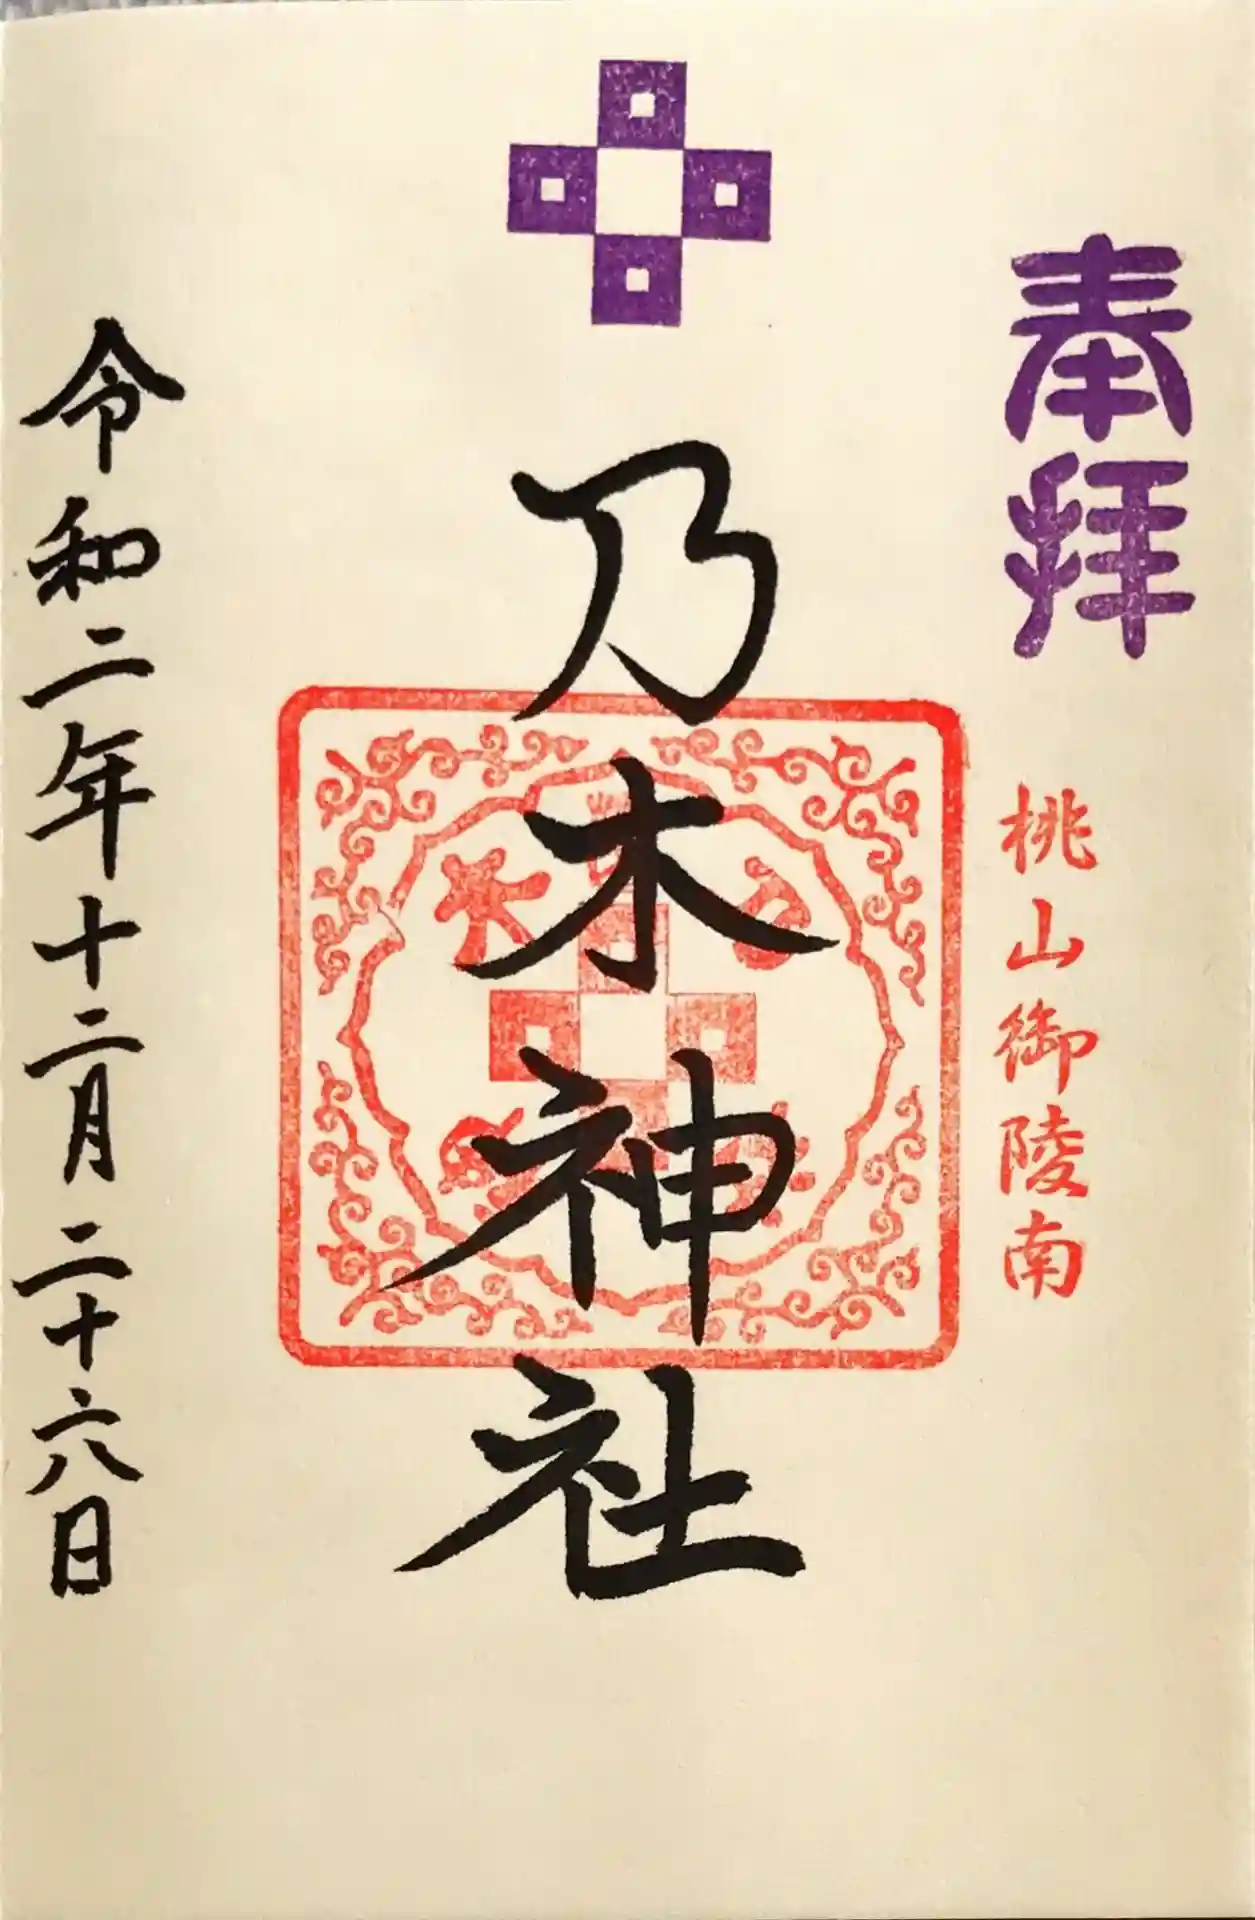 奉拝
桃山御陵南
乃木神社
令和二年十二月二十六日